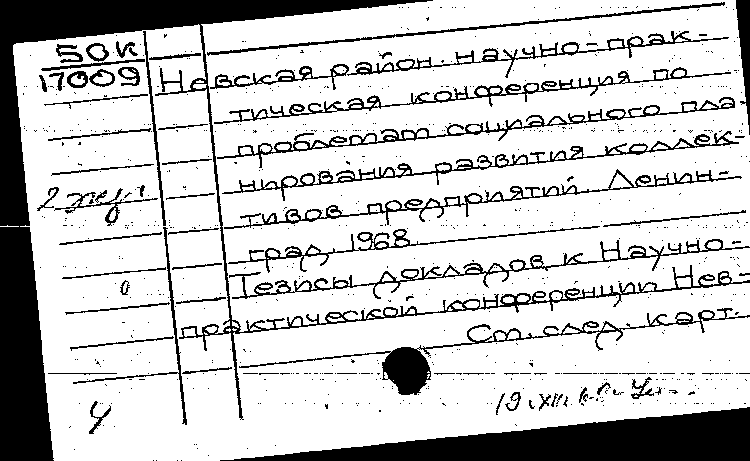 50к
17009
Невская район. научно-прак-
тическая конференция по
проблемам социального пла-
нирования развития коллек-
2 экз.
тивов предприятий. Ленин-
град. 1968.
0
Тезисы докладов к Научно-
практической конференции Нев-
См. след. карт.
4
19.XII.